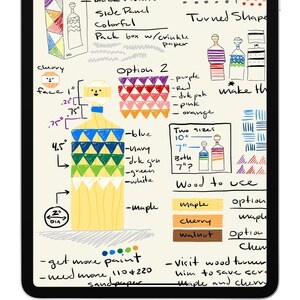 side Panel
Colorful
Pack box w/crinkle
paper
Tunnel Shape
cherry
face 1"
Option 2
.25"
.75"
.75"
4.5"
2"
DIA
purple
red
dark pink
pink
orange
blue
navy
dark gun
green
white
maple
make th
Two sizes
10"
7"
Both
?
Wood to use
maple
cherry
walnut
option
maple
option
Cherry
- get more paint
- need more 110 & 220
sandpaper
- Visit wood turner
him to save scrap
maple and cherry